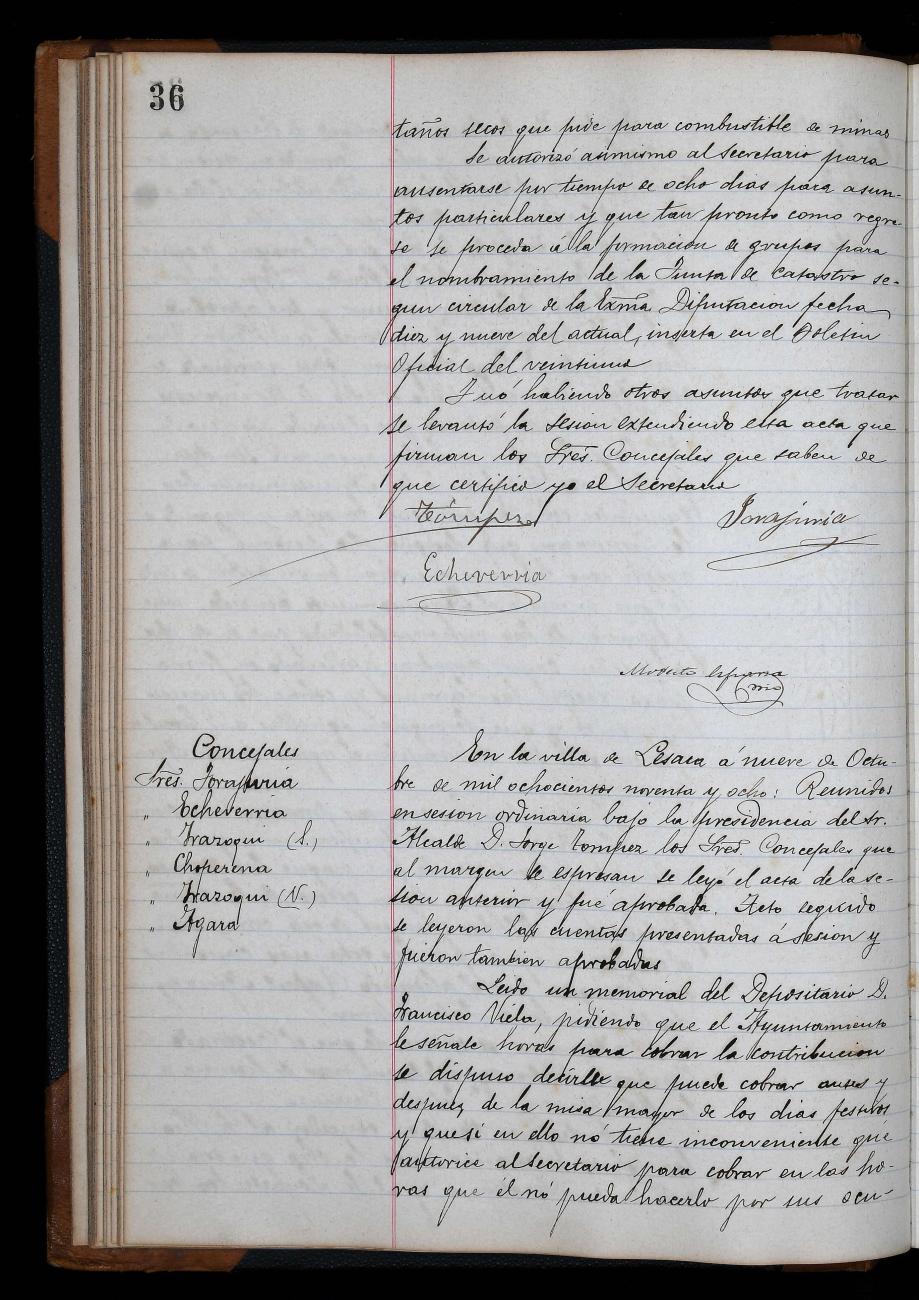 36
taños secos que pide para combustible de minas
Se autorizó asimismo al Secretario para
ausentarse por tiempo de ocho dias para asun-
tos particulares y que tan pronto como regre-
se se proceda á la formacion de grupos para
el nombramiento de la Junta de Catastro se-
gun circular de la Exmã Diputacion fecha
diez y nueve del actual, inserta en el Boletin
Oficial del veintiuno
Y nó habiendo otros asuntos que tratar
se levantó la sesion extendiendo esta acta que
firman los Sres. Concejales que saben de
que certifico yo el Secretario
Tómpez
Yorajuria
Echeverria
Modesto
Concejales
Sres. Yorajuria
" Echeverria
" Irazoqui (S.)
" Choperena
" Irazoqui (N.)
" Agara
En la villa de Lesaca á nueve de Octu-
bre de mil ochocientos noventa y ocho: Reunidos
en sesion ordinaria bajo la presidencia del Sr.
Alcalde D. Jorge Tompez los Sres. Concejales que
al margen se espresan se leyó el acta de la se-
sion anterior y fué aprobada. Acto seguido
se leyeron las cuentas presentadas á sesion y
fueron tambien aprobadas
Leido un memorial del Depositario D.
Francisco Viela, pidiendo que el Ayuntamiento
le señale horas para cobrar la contribucion
se dispuso decirle que puede cobrar antes y
despues de la misa mayor de los dias festivos
y que si en ello nó tiene inconveniente que
autorice al Secretario para cobrar en las ho-
ras que él nó pueda hacerlo por sus ocu-